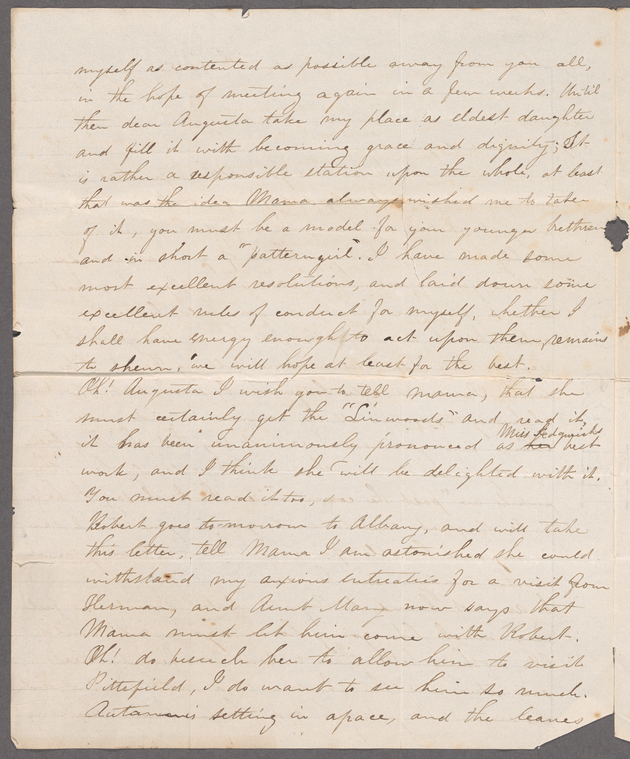 myself as contented as possible away from you all,
in the hope of meeting again in a few weeks. Until
then dear Augusta take my place as eldest daughter
and fill it with becoming grace and dignity; It
is rather a responsible station upon the whole, at least
that was the idea Mama always wished me to take
of it, you must be a model for your younger brethren
and in short a "pattern girl". I have made some
most excellent resolutions, and laid down some
excellent rules of conduct for myself, whether I
shall have energy enough to act upon them, remains
to shewn, we will hope at least for the best.
Oh! Augusta I wish you to tell mama, that she
must certainly get the "Linwoods" and read it,
it has been unanimously pronounced as Miss Sedgwicks best
work, and I think she will be delighted with it.
You must read it too,
Robert goes to-morrow to Albany, and will take
this letter, tell Mama I am astonished she could
withstand my anxious entreaties for a visit from
Herman, and Aunt Mary now says that
Mama must let him come with Robert.
Oh! do beseech her to allow him to visit
Pittsfield, I do want to see him so much.
Autumn is setting in apace, and the leaves